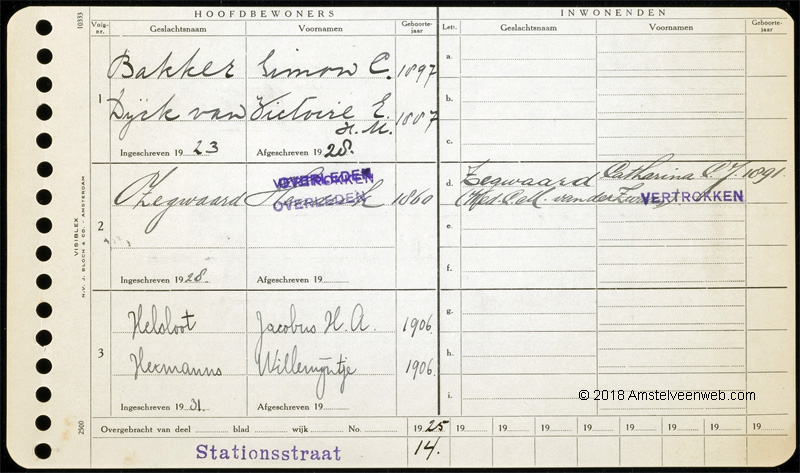 HOOFDBEWONERS INWONENDEN
Volg-nr. Geslachtsnaam Voornamen Geboorte-jaar Lett. Geslachtsnaam Voornamen Geboorte-jaar
10333
1
Bakker Simon C. 1897
Dijck van Victoire E. 1887
H.M.
Ingeschreven 1923 Afgeschreven 1928.
a.
b.
c.
2
Zegwaard 1860
OVERLEDEN
VERTROKKEN
OVERLEDEN
Ingeschreven 1928. Afgeschreven 19
d. Zegwaard Catharina C. J. 1891.
(Wed. C.a.M. van der
VERTROKKEN
e.
f.
3
Helsloot Jacobus H. A. 1906.
Hermanns Willemijntje 1906.
Ingeschreven 1931. Afgeschreven 19
g.
h.
i.
VISIBLEX
N.V. J. BLOCH & CO. - AMSTERDAM
2500
Overgebracht van deel blad wijk No. 1925 19 19 19 19 19 19 19 19
Stationsstraat 14.
© 2018 Amstelveenweb.com